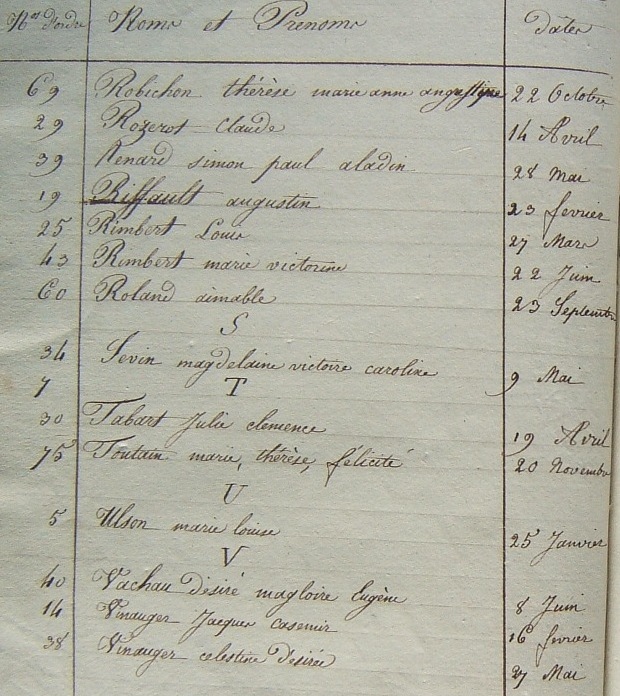 Nos d'ordre Noms et Prénoms dates
69 Robichon thérèse marie anne angustine 22 Octobre
29 Rozerot claude 14 Avril
39 Renard simon paul aladin 28 Mai
19 Riffault augustin 23 fevrier
25 Rimbert Louis 27 Mars
43 Rimbert marie victorine 22 Juin
60 Roland aimable 23 Septembre
S
34 Sevin magdelaine victoire caroline 9 Mai
7 T
30 Tabart Julie clemence 19 Avril
75 Toutain marie, thérèse, félicité 20 Novembre
U
5 Ulson marie louise 25 Janvier
V
40 Vachau Desiré magloire Eugène 8 Juin
14 Vinauger Jacques casemir 16 fevrier
38 Vinauger celestine Desirée 27 Mai